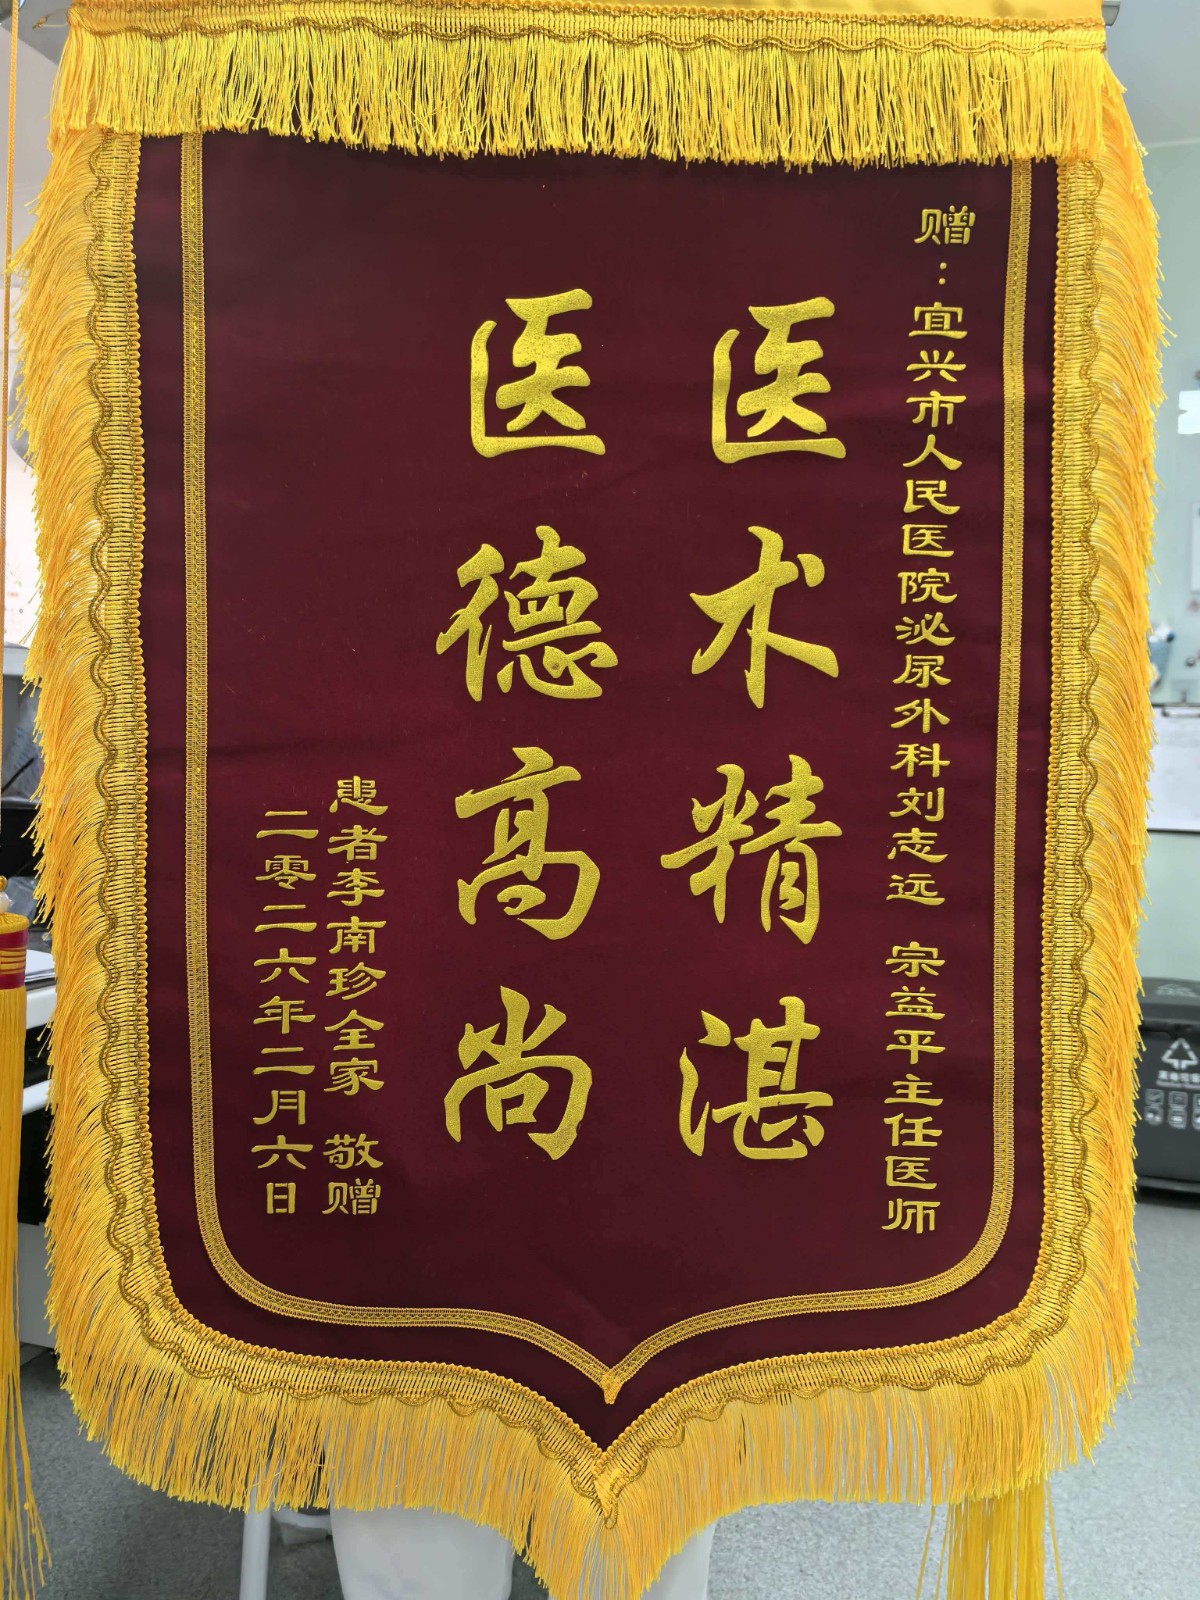 赠：宜兴市人民医院泌尿外科刘志远 宗益平主任医师
医术精湛
医德高尚
患者李南珍全家 敬赠
二零二六年二月六日